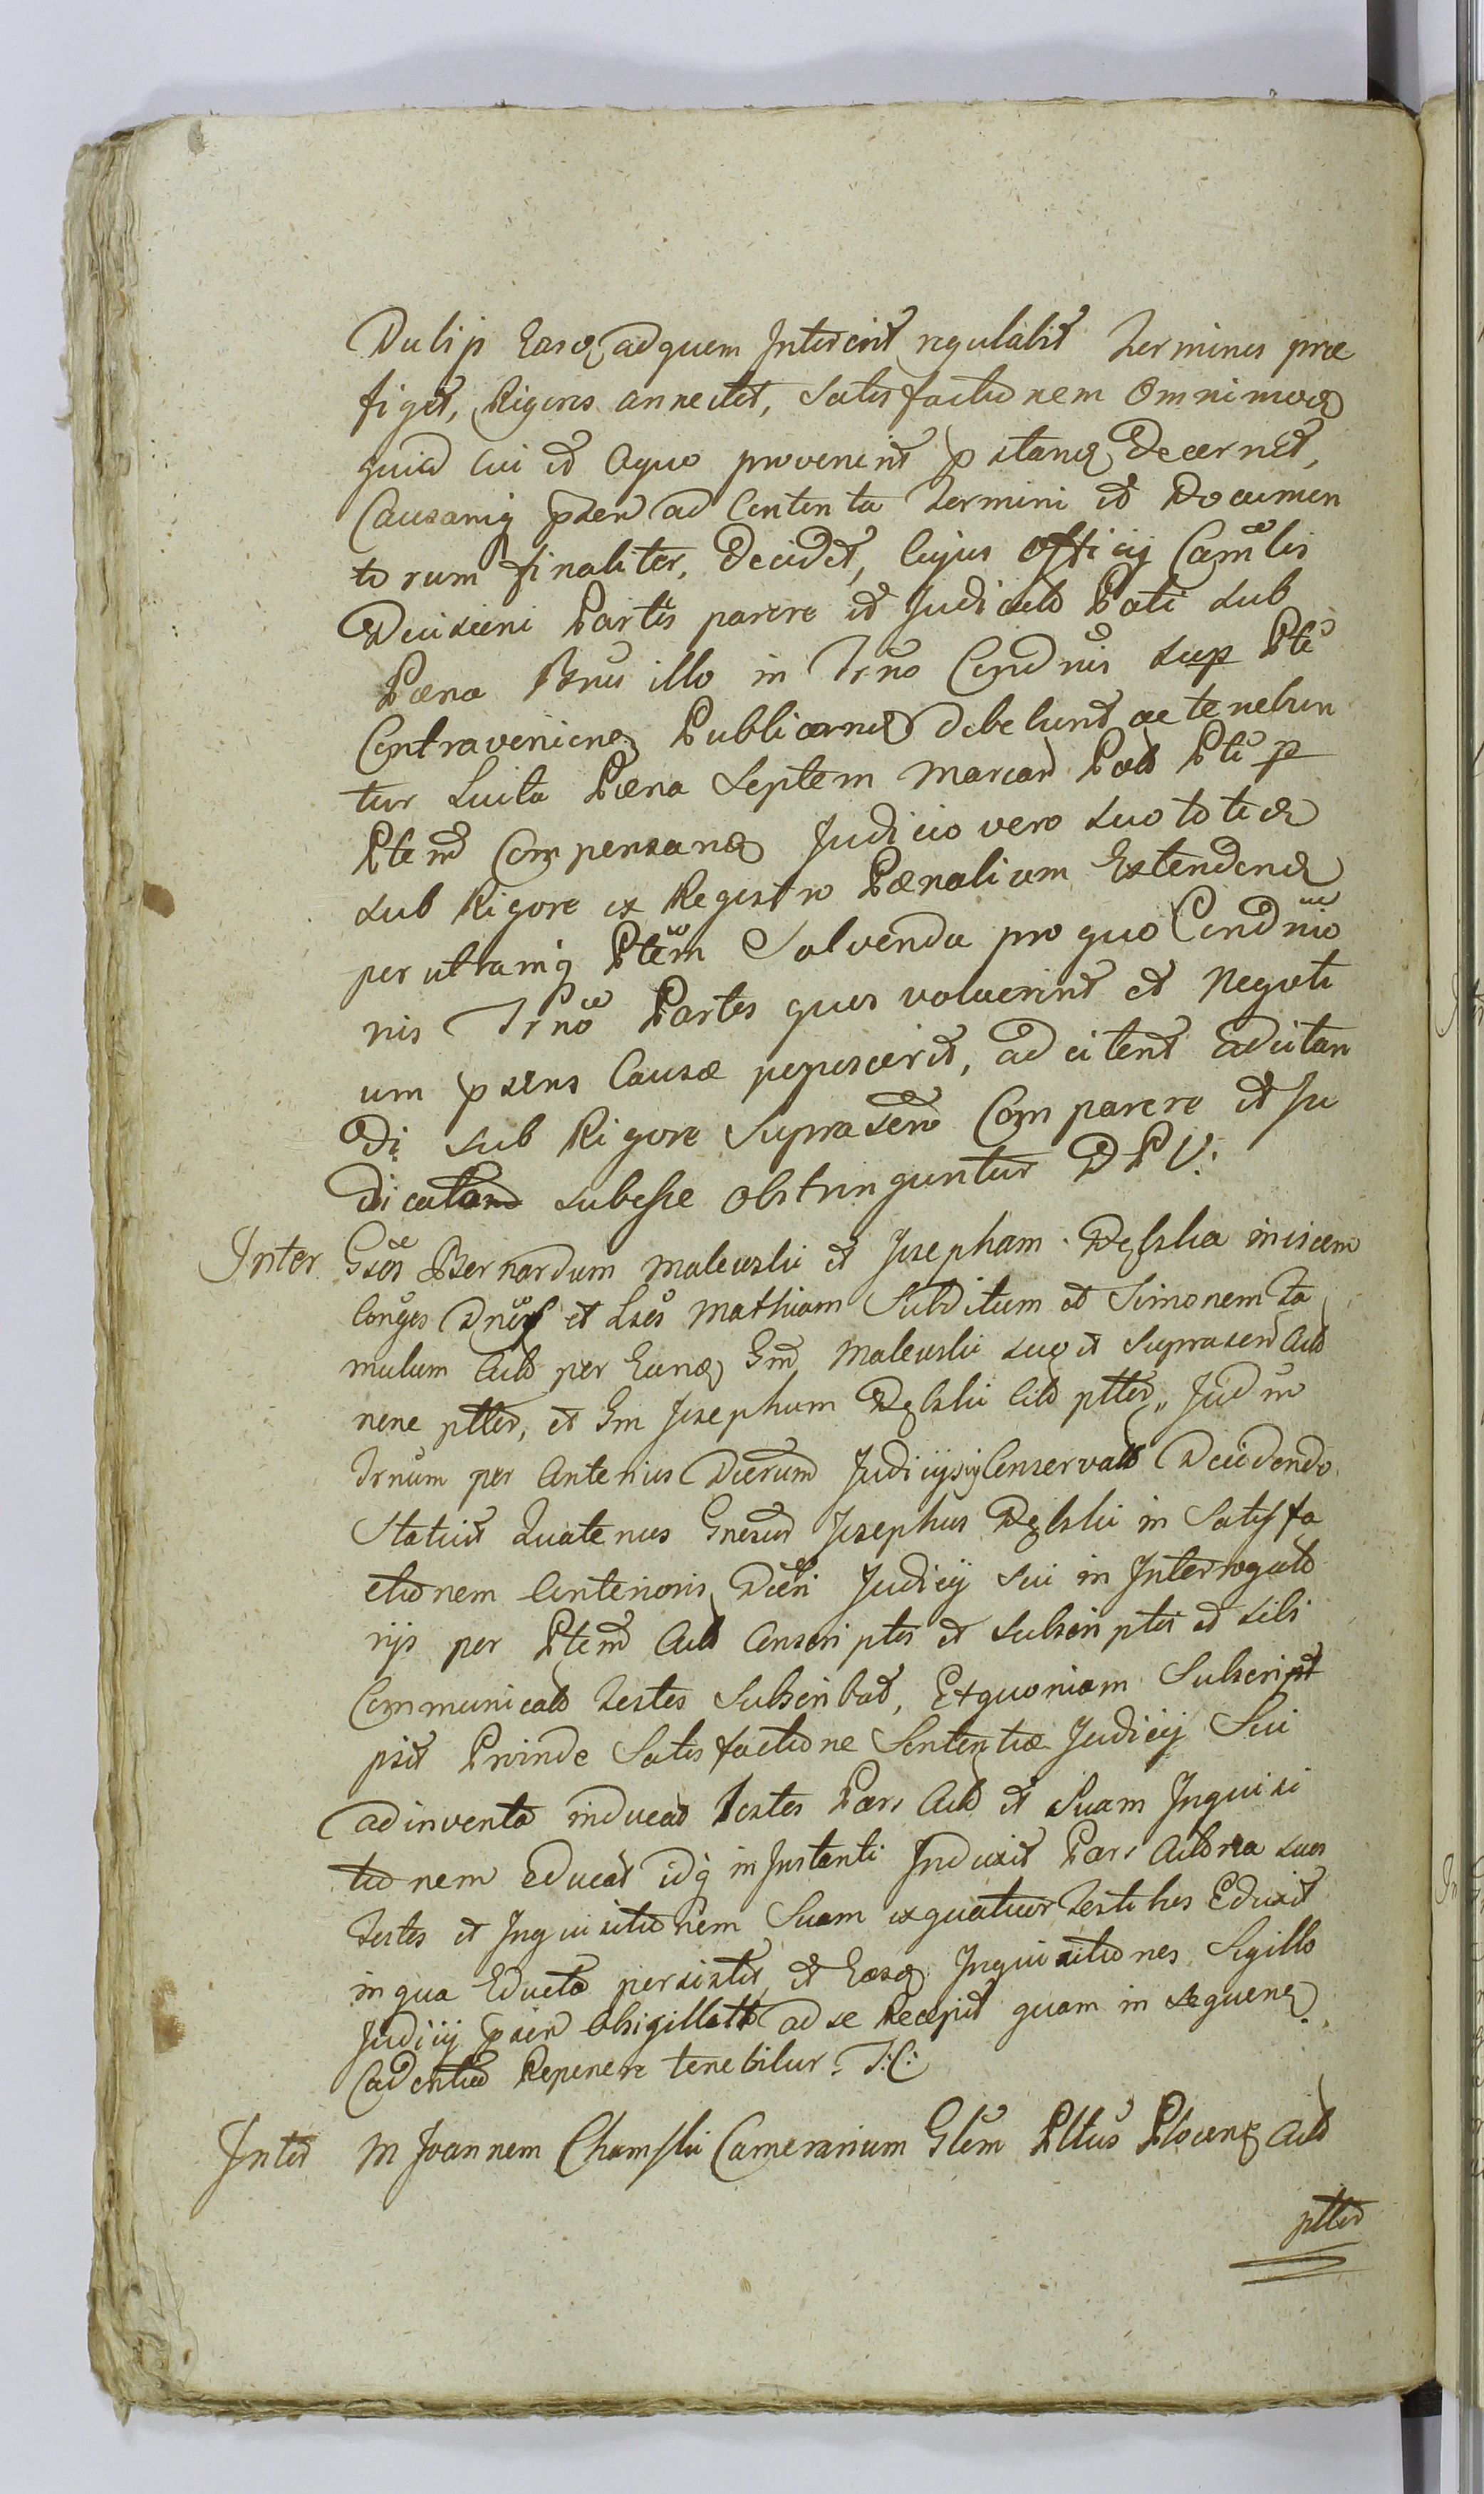 Dulip Easq adquem Intererit regulabit Terminus prae
figet, Rigores annectet, Satisfactionem Omnimoda
quid cui et aquo provenerit pstanda Decernet,
Causamq psen ad Contenta Termini et Documen
to rum finaliter, Decidet, Cujus Officij Camelis
Decisioni Partes parere et Judicato Pati sub
Poena Bnis illo in Trno Condnis sup Pte
Contraveniens Publicanda debebunt ac tenebun
tur Luita Poena Septem Marcar Pol Pti p
Ptem Compensanda Judicio vero suo toties
sub Rigore ex Registro Poenalium Extendenda
per utramq Ptem Solvenda pro quo Condnio
nis Trno Partes quos voluerint et Negoti
um psens Causae poposcerit, ad citent Adcitan
di sub Rigore Suprasen Comparere et Ju
dicatum subesse Obstringuntur D P V:
Inter Gsos Bernardum Malewski et Josepham Deblska invicem
Conges Dnos et Lsos Mathiam Subditum et Simonem Fa
mulum Act per Eund Gm Malewski suo et Suprasen Act
nene pltter, et Gm Josephum Deblski Cit pltter, Jud in
Trnum per Anterius Dierum Judicijsiq Conservato Decidendo
Statuit Quatenus Gnesus Josephus Deblski in Satisfa
ctionem Anterioris Diei Judicij Sui in Interrogato
rijs per Ptem Act Conscriptis et Subscriptis et sibi
Communicato Testes Subscribat, Et quoniam Subscript
psit Proinde Satisfactione Sententiae Judicij Sui
adinventa inducat Testes Pars Act et Suam Inquisi
tionem educat idq in Instanti Induxit Pars Actorea suos
Testes et Inquisitionem Suam ex quatuor Testibus Eduxit
in qua Educta persistit, et Easd Inquisitiones Sigillo
Judicij psen Obsigillatt ad se Recepit quam in sequend
Cadentia Reponere tenebitur. T: C:
Inter M Joannem Chamski Camerarium Glem Pltus Plocens Act
pltter